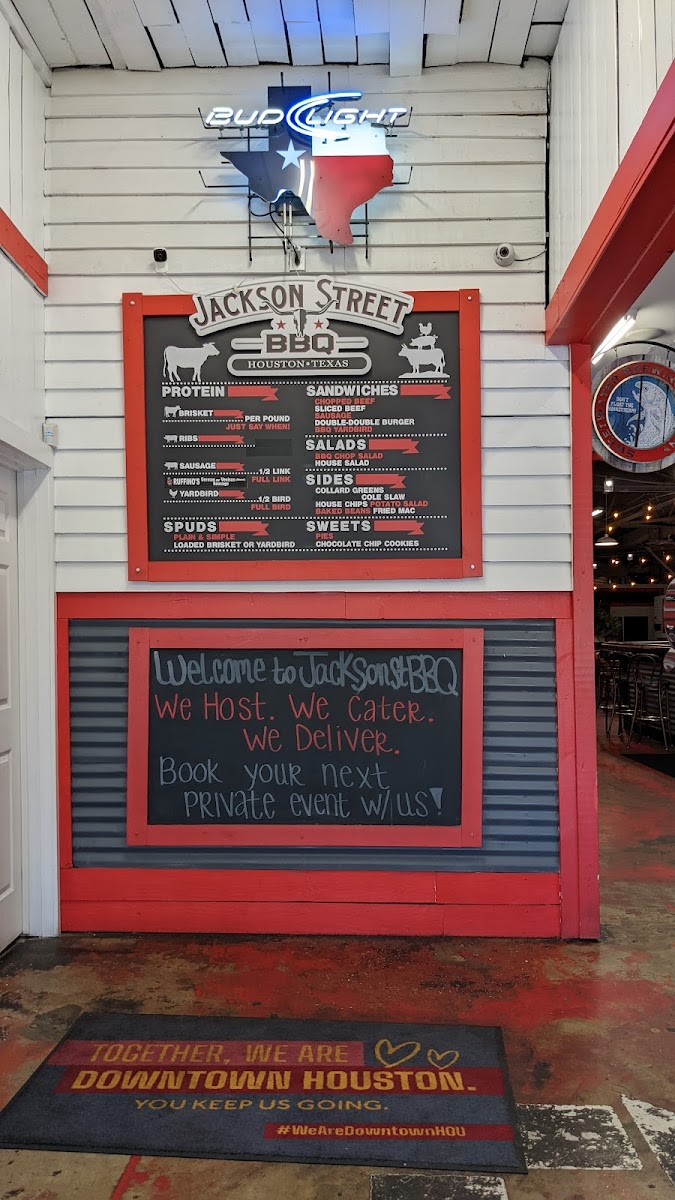 BUD LIGHT
JACKSON STREET
BBQ
HOUSTON • TEXAS
PROTEIN
BRISKET
PER POUND
JUST SAY WHEN!
RIBS
SAUSAGE
1/2 LINK
FULL LINK
& RUFFINO'S German or Venison Sausage
YARDBIRD
1/2 BIRD
FULL BIRD
SPUDS
PLAIN & SIMPLE
LOADED BRISKET OR YARDBIRD
SANDWICHES
CHOPPED BEEF
SLICED BEEF
SAUSAGE
DOUBLE-DOUBLE BURGER
BBQ YARDBIRD
SALADS
BBQ CHOP SALAD
HOUSE SALAD
SIDES
COLLARD GREENS
COLE SLAW
HOUSE CHIPS POTATO SALAD
BAKED BEANS FRIED MAC
SWEETS
PIES
CHOCOLATE CHIP COOKIES
Welcome to Jackson St BBQ
We Host. We Cater.
We Deliver.
Book your next
private event w/ us!
TOGETHER, WE ARE
DOWNTOWN HOUSTON.
YOU KEEP US GOING.
#WeAreDowntownHOU